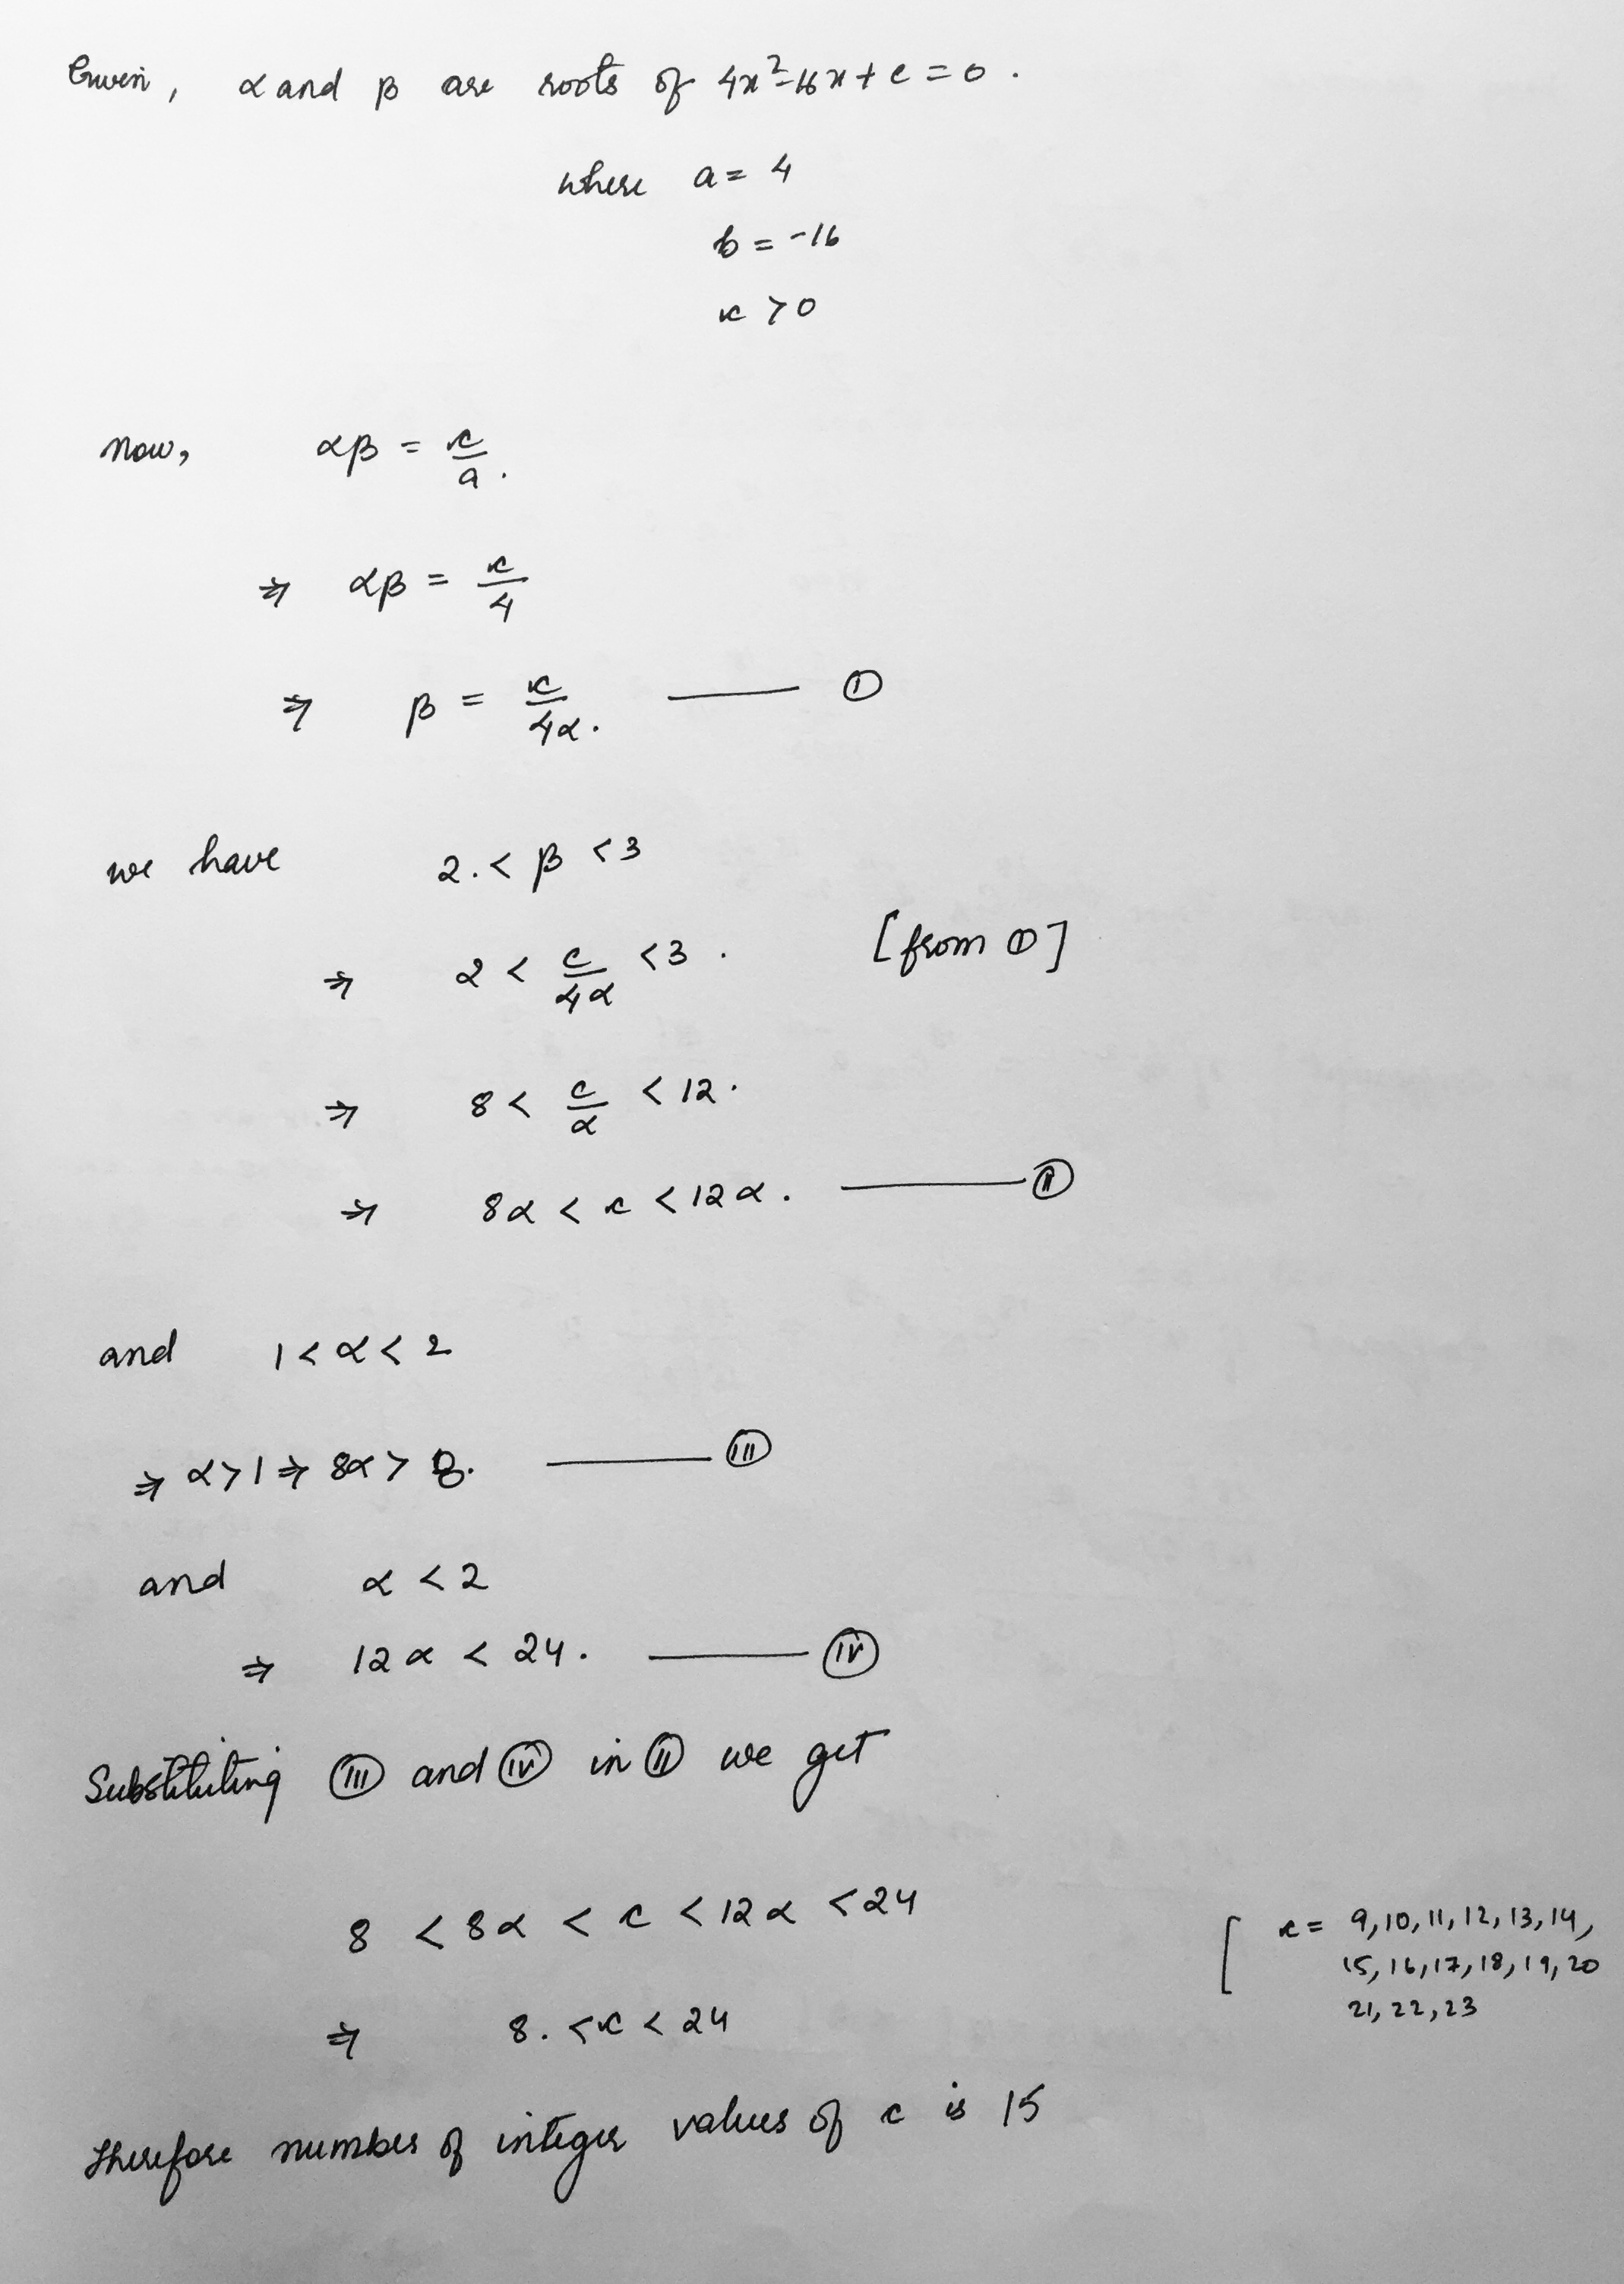 Given, α and β are roots of 4x²-16x+c=0.
where a = 4
b = -16
c > 0
Now, αβ = c/a.
⇒ αβ = c/4
⇒ β = c/4α. —— ①
we have 2.< β <3
⇒ 2 < c/4α <3. [from ①]
⇒ 8 < c/α < 12.
⇒ 8α < c < 12α. —— Ⅱ
and 1 < α < 2
⇒ α>1 ⇒ 8α > 8. —— Ⅲ
and α < 2
⇒ 12α < 24. —— Ⅳ
Substituting Ⅲ and Ⅳ in Ⅱ we get
8 < 8α < c < 12α < 24
[ c = 9,10,11,12,13,14,
15,16,17,18,19,20
21,22,23
⇒ 8. < c < 24
Therefore number of integer values of c is 15